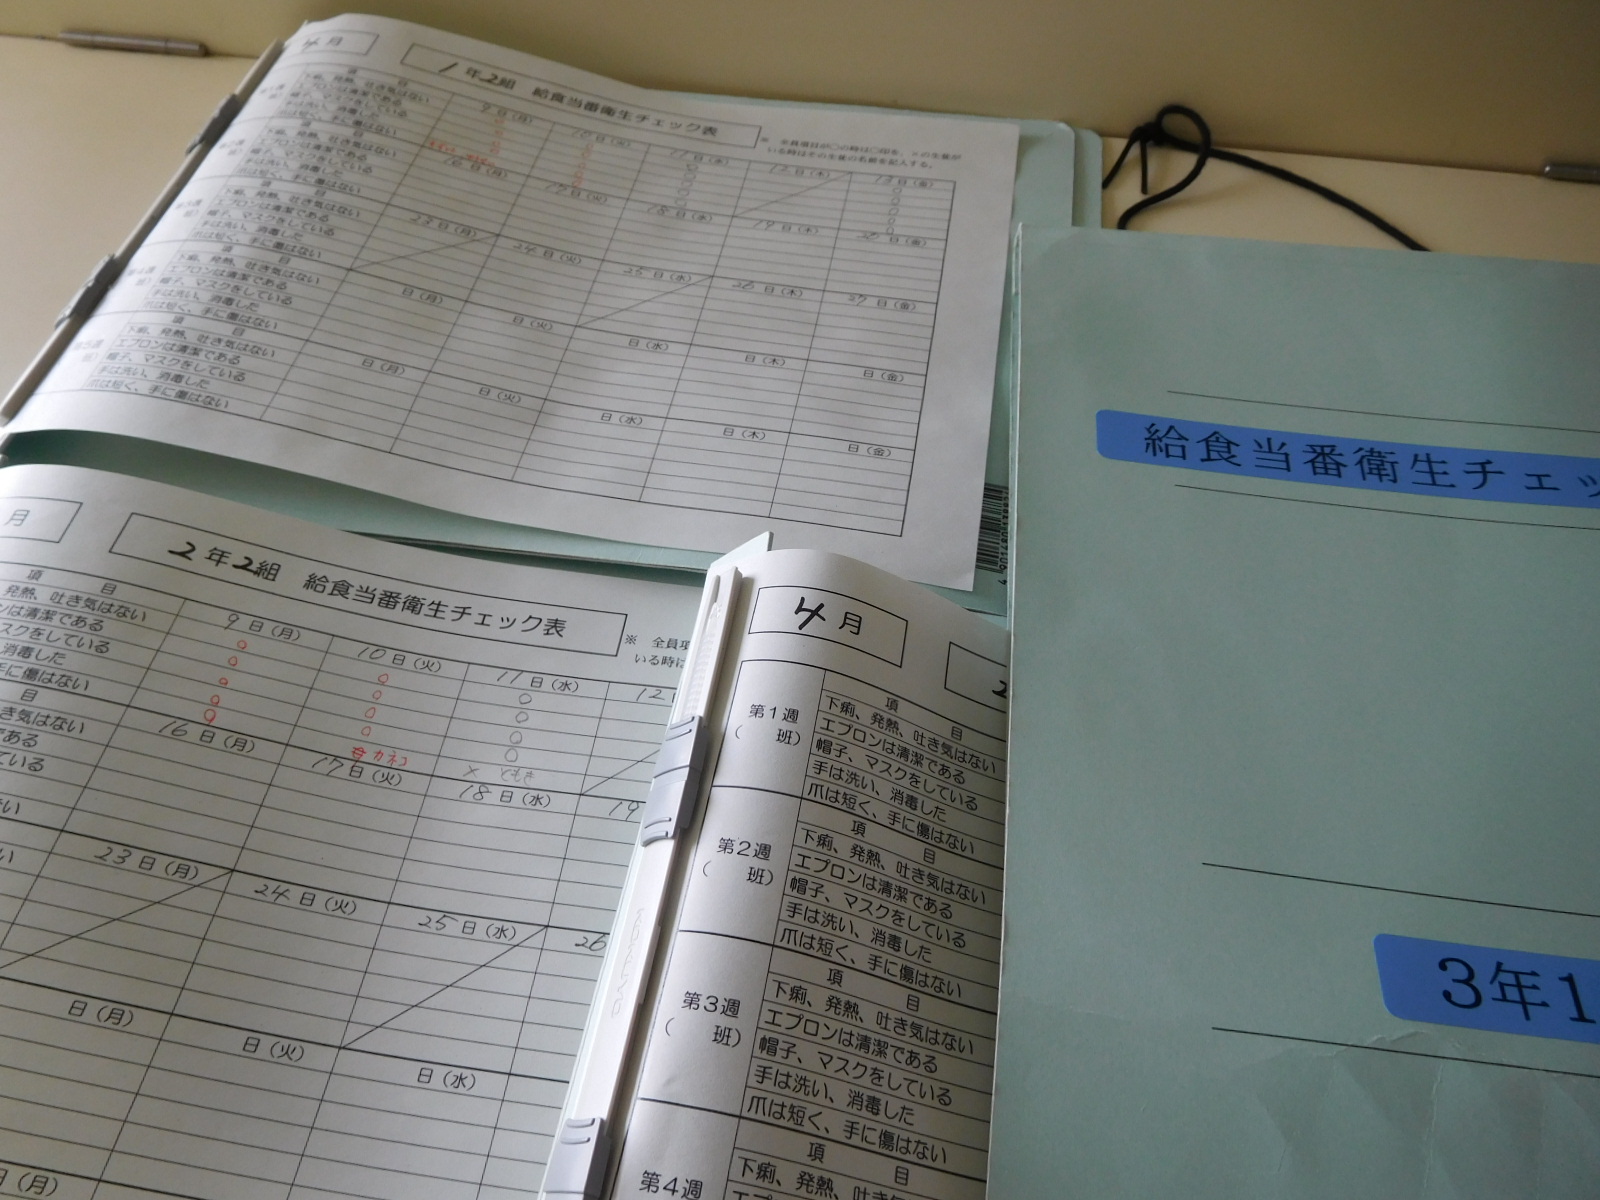 4月
1年2組 給食当番衛生チェック表
※ 全員項目が○の時は○印を、×の生徒が
いる時はその生徒の名前を記入する。
項 目
9日(月) 10日(火) 11日(水) 12日(木) 13日(金)
下痢、発熱、吐き気はない
エプロンは清潔である
帽子、マスクをしている
手は洗い、消毒した
爪は短く、手に傷はない
項 目
16日(月) 17日(火) 18日(水) 19日(木) 20日(金)
下痢、発熱、吐き気はない
エプロンは清潔である
帽子、マスクをしている
手は洗い、消毒した
爪は短く、手に傷はない
第3週
項 目
23日(月) 24日(火) 25日(水) 26日(木) 27日(金)
下痢、発熱、吐き気はない
エプロンは清潔である
帽子、マスクをしている
手は洗い、消毒した
爪は短く、手に傷はない
第4週
項 目
日(月) 日(火) 日(水) 日(木) 日(金)
下痢、発熱、吐き気はない
エプロンは清潔である
帽子、マスクをしている
手は洗い、消毒した
爪は短く、手に傷はない
第5週
項 目
日(月) 日(火) 日(水) 日(木) 日(金)
下痢、発熱、吐き気はない
エプロンは清潔である
帽子、マスクをしている
手は洗い、消毒した
爪は短く、手に傷はない
月
2年2組 給食当番衛生チェック表
※ 全員項
いる時に
項 目
9日(月) 10日(火) 11日(水) 12
発熱、吐き気はない
ンは清潔である
スクをしている
消毒した
手に傷はない
カネコ
× ともき
目
16日(月) 17日(火) 18日(水) 19
き気はない
である
ている
23日(月) 24日(火) 25日(水) 26
日(月) 日(火) 日(水)
日(月)
KOKUYO
4月
2
第1週
(班)
項 目
下痢、発熱、吐き気はない
エプロンは清潔である
帽子、マスクをしている
手は洗い、消毒した
爪は短く、手に傷はない
第2週
(班)
項 目
下痢、発熱、吐き気はない
エプロンは清潔である
帽子、マスクをしている
手は洗い、消毒した
爪は短く、手に傷はない
第3週
(班)
項 目
下痢、発熱、吐き気はない
エプロンは清潔である
帽子、マスクをしている
手は洗い、消毒した
爪は短く、手に傷はない
第4週
項 目
下痢、発熱、吐き気はない
給食当番衛生チェッ
3年1